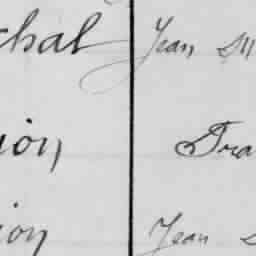 chal Jean M
ion, Fra
ion Jean